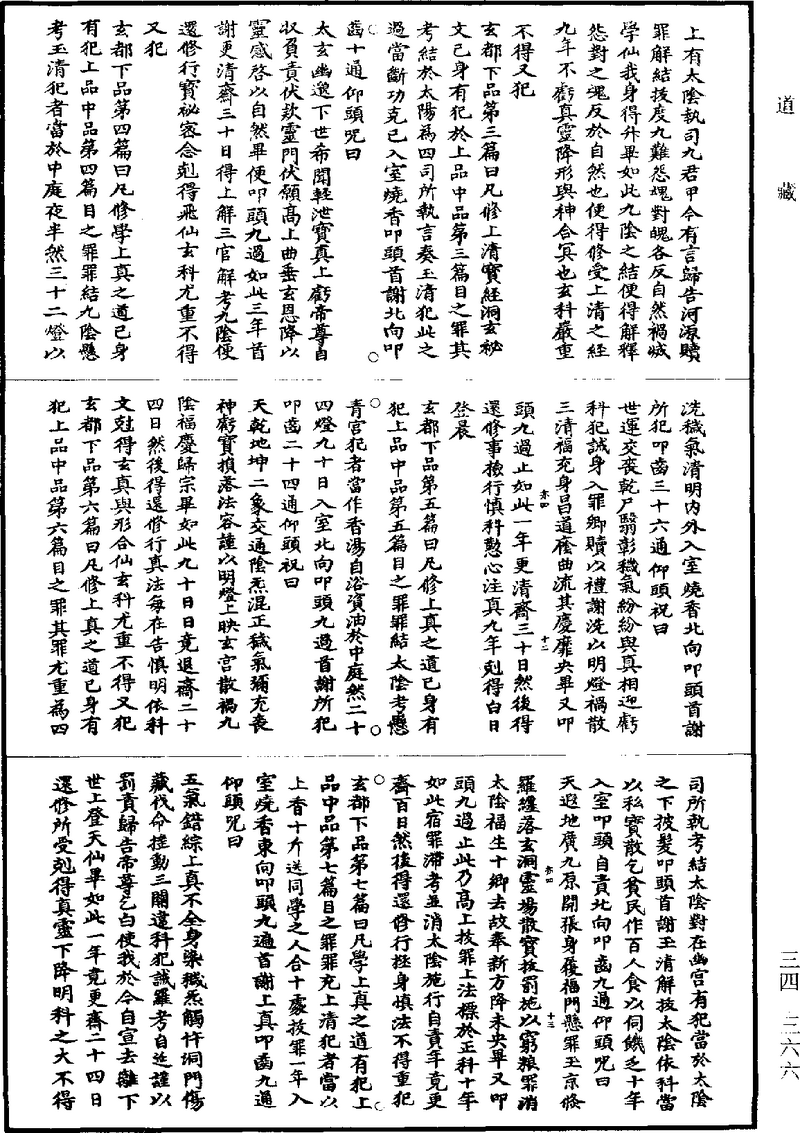 道藏
上有太陰執司九君甲令有言歸告河源贖
罪解結拔度九難怨塊對魄各反自然禍滅
學仙我身得升畢如此九陰之結便得解釋
怨對之魂反於自然也便得修受上清之經
九年不虧真靈降形與神合冥也玄科嚴重
不得又犯
玄都下品第三篇曰凡修上清寶經洞玄祕
文己身有犯於上品中品第三篇目之罪其
考結於太陽為四司所執言奏玉清犯此之
過當斷功克己入室燒香叩頭首謝北向叩
齒十通仰頭咒曰
太玄幽邈下世希聞輕泄寶真上虧帝尊自
収負責伏欵靈門伏願高上曲垂玄恩降以
靈感啓以自然畢便叩頭九過如此三年首
謝更清齋三十日得上解三官解考九陰便
還修行寶祕容念剋得飛仙玄科尤重不得
又犯
玄都下品第四篇曰凡修學上真之道己身
有犯上品中品第四篇目之罪罪結九陰懸
考玉清犯者當於中庭夜半然三十二燈以
洗穢氣清明內外入室燒香北向叩頭首謝
所犯叩齒三十六通仰頭祝曰
世運交喪乾戶翳彰穢氣紛紛與真相迎虧
科犯誡身入罪鄉贖以禮謝洗以明燈禍散
三清福充身昌道麼曲流其慶靡央畢又叩
頭九過止如此一年更清齋三十日然後得
還修事撿行慎科懃心注真九年剋得白日
登晨
玄都下品第五篇曰凡修上真之道己身有
犯上品中品第五篇目之罪罪結太陰考懸
青宮犯者當作香湯自浴資油於中庭然二十
四燈九十日入室北向叩頭九過首謝所犯
叩齒二十四通仰頭祝曰
天乾地坤二象交通陰炁混正穢氣彌充喪
神虧寶損落法容謹以明燈上映玄宮散禍九
陰福慶歸宗畢如此九十日日竟退齋二十
四日然後得還修行真法每在告慎明依科
文剋得玄真與形合仙玄科尤重不得又犯
玄都下品第六篇曰凡修上真之道己身有
犯上品中品第六篇目之罪其罪尤重為四
司所執考結太陰對在幽宮有犯當於太陰
之下披髮叩頭首謝玉清解拔太陰依科當
以私寶散乞貧民作百人食以伺饑乏十年
入室叩頭自責北向叩齒九通仰頭咒曰
天遐地廣九原開張身履福門懸罪玉京倐
羅纏落玄洞靈場散寶投罰地以窮粮罪消
太陰福生十鄉去故奉新方降未央畢又叩
頭九過止此乃高上拔罪上法標於正科十年
如此宿罪滯考並消太陰施行自責年竟更
齋百日然後得還修行拯身慎法不得重犯
玄都下品第七篇曰凡學上真之道有犯上
品中品第七篇目之罪罪充上清犯者當以
上香十斤送同學之人合十處投罪一年入
室燒香東向叩頭九過首謝上真叩齒九通
仰頭咒曰
五氣錯綜上真不全身染穢炁觸忤洞門傷
藏伐命挂動三關違科犯誡羅考自延謹以
罰責歸告帝尊乞白使我於今自宣去離下
世上登天仙畢如此一年竟更齋二十四日
還修所受剋得真靈下降明科之大不得
亦四
十二
亦四
十三
三四
三六六